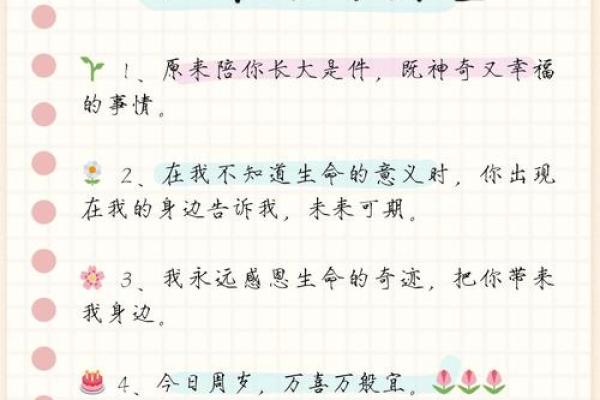 1、原来陪你长大是件，既神奇又幸福
的事情。
2、在我不知道生命的意义时，你出现
在我的身边告诉我，未来可期。
3、我永远感恩生命的奇迹，把你带来
我身边。
4、今日周岁，万喜万般宜。